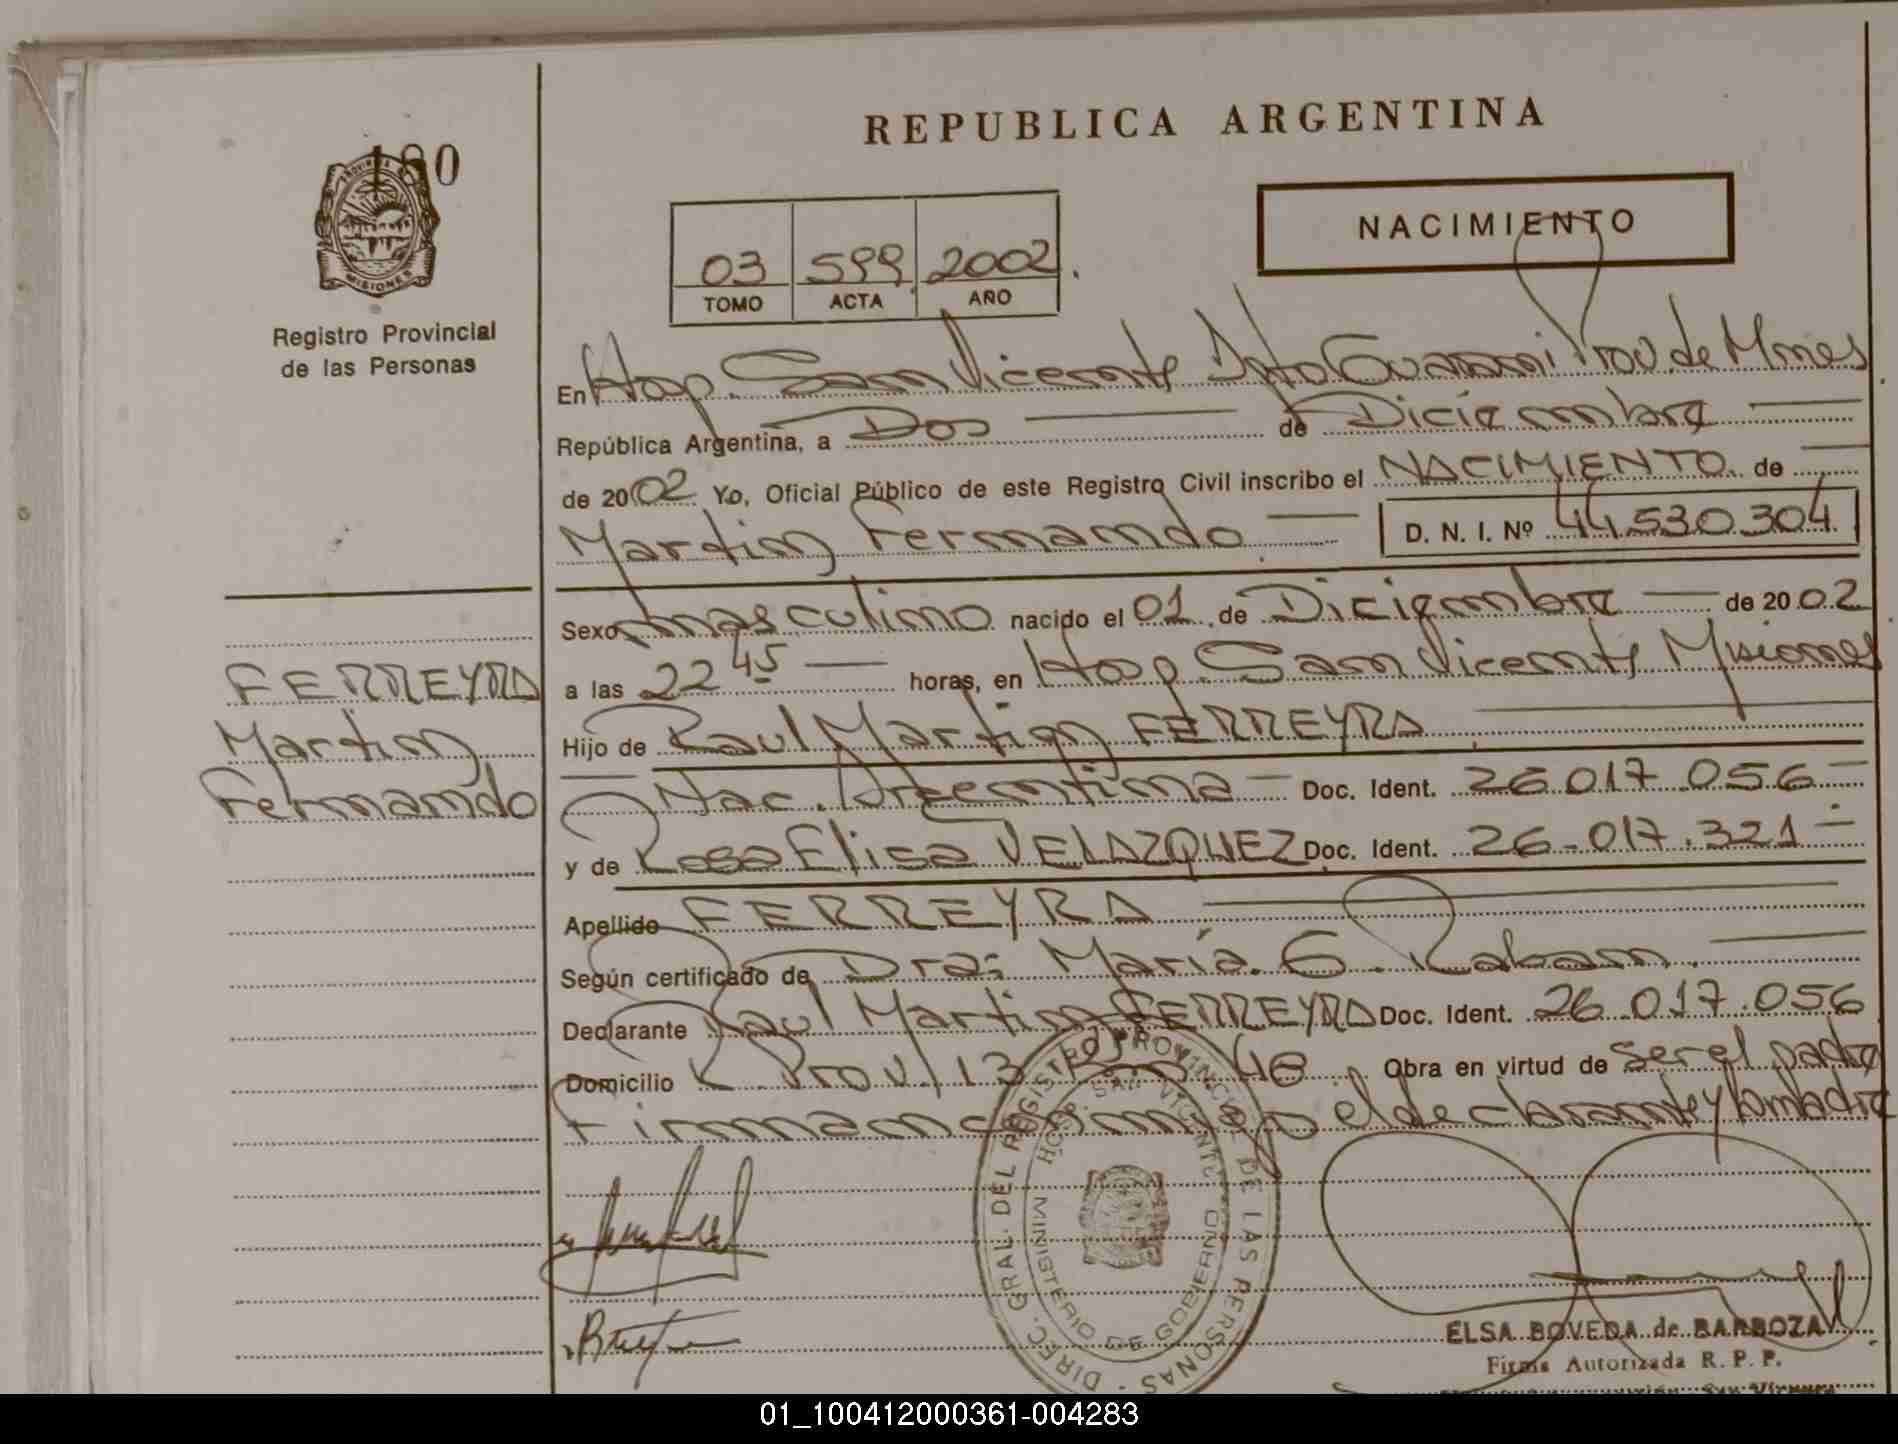 REPUBLICA ARGENTINA
180
PROVINCIA
MISIONES
Registro Provincial
de las Personas
NACIMIENTO
03 599 2002
TOMO ACTA AÑO
En Hosp. San Vicente Dpto Guarani Prov. de Mnes
República Argentina, a Dos de Diciembre
de 2002 Yo, Oficial Público de este Registro Civil inscribo el NACIMIENTO de
Martin Fernando D. N. I. Nº 44.530.304
Sexo masculino nacido el 01 de Diciembre de 2002
a las 22 45 horas, en Hosp. San Vicente Misiones
Hijo de Raul Martin FERREYRA
Nac. Argentina Doc. Ident. 26.017.056
y de Rosa Elisa VELAZQUEZ Doc. Ident. 26.017.321
Apellido FERREYRA
Según certificado de Dra: María. G. Raban.
Declarante Raul Martin FERREYRA Doc. Ident. 26.017.056
Domicilio K. Prov/13 48 Obra en virtud de ser el padre
Firman conmigo el declarante y la madre
FERREYRA
Martin
Fernando
DIREC. GRAL. DEL REGISTRO PROVINCIAL DE LAS PERSONAS
HOSP. SAN VICENTE
MINISTERIO DE GOBIERNO
ELSA BOVEDA de BARBOZA
Firma Autorizada R. P. P.
San Vicente
01_100412000361-004283